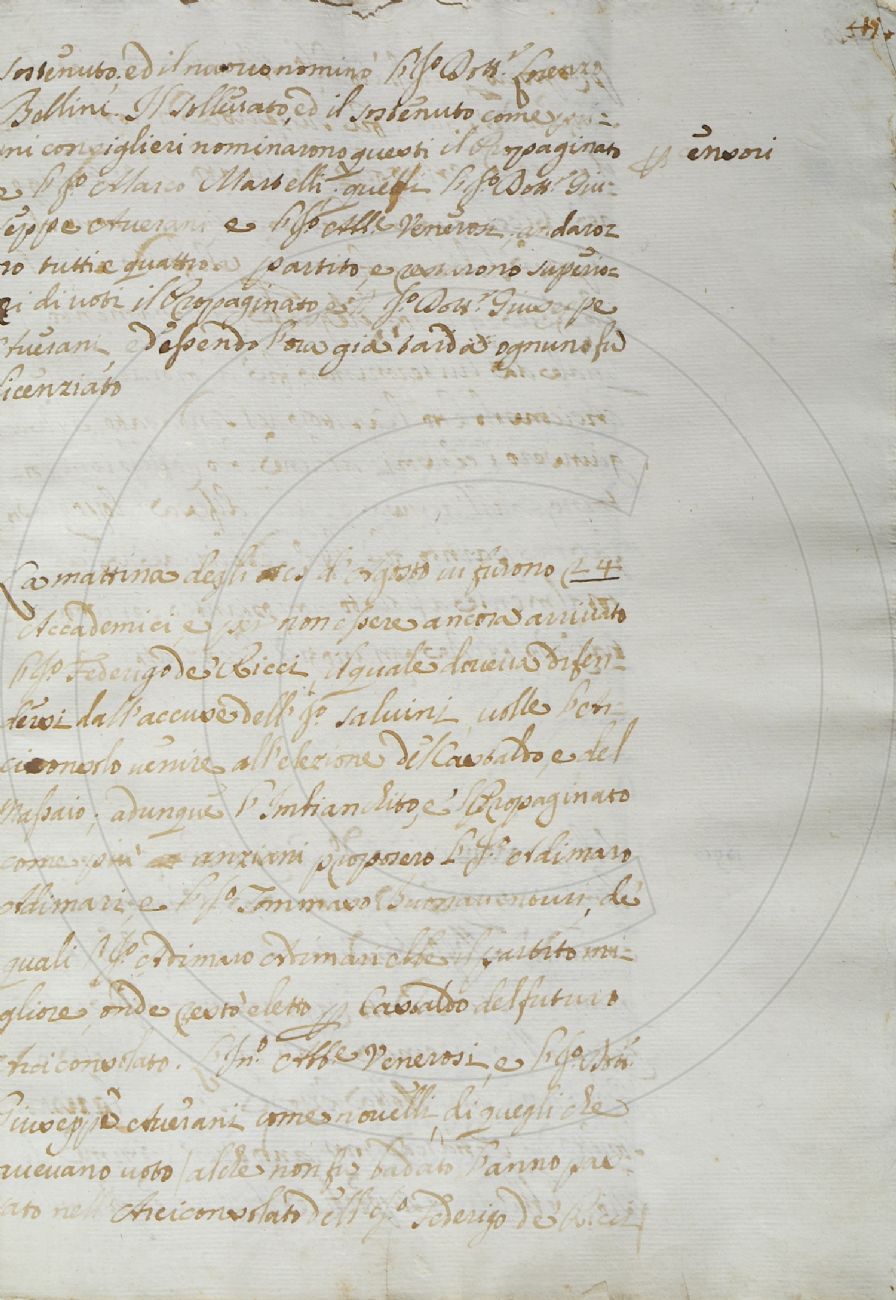 sostenuto, ed il nuovo nominò l'Ss.o Dott.r Lorenzo
Bellini. Il Sollevato, ed il sostenuto come pri=
mi consiglieri nominarono questi il Propaginato
e l'Ss.o Marco Martelli: quelli l'Ss.o Dott.r Giu=
seppe Averani, e l'Ss.o Abb.e Venerosi, andaro=
no tutti e quattro a partito, e restarono superio=
ri di voti il Propaginato, e l'Ss.o Dott.r Giuseppe
Averani, ed essendo l'ora già tarda ognuno fu
licenziato
censori
La mattina degli d'Agosto vi furono 24
Accademici, e per non essere ancora arrivato
l'Ss.o Federigo de' Ricci, il quale doveva difen=
dersi dall'accuse dell'Ss.o Salvini, volle l'Ar=
ciconsolo venire all'elezione del Castaldo, e del
Massaio; adunque l'Imbiandito, e'l Propaginato
come più anziani proposero l'Ss.o Adimaro
Adimari, e l'Ss.o Tommaso Buonaventuri, de'
quali l'Ss.o Adimaro Adimari ebbe il partito mi=
gliore, onde restò eletto p Castaldo del futuro
Arciconsolato. L'Ss.o Abb.e Venerosi, e l'Ss.o Dott.
Giuseppe Averani come novelli, di quegli che
avevano voto / al che non fù badato l'anno pas
sato nell'Arciconsolato dell'Ss.o Federigo de' Ricci /